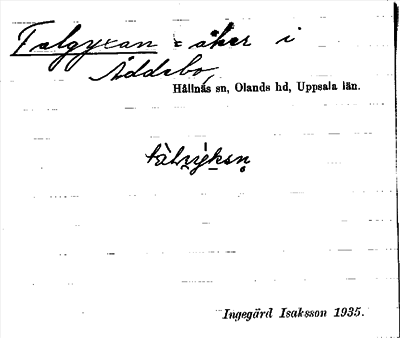 Talgyxan = åker i
Åddebo,
Hållnäs sn, Olands hd, Uppsala län.
Ingegärd Isaksson 1935.